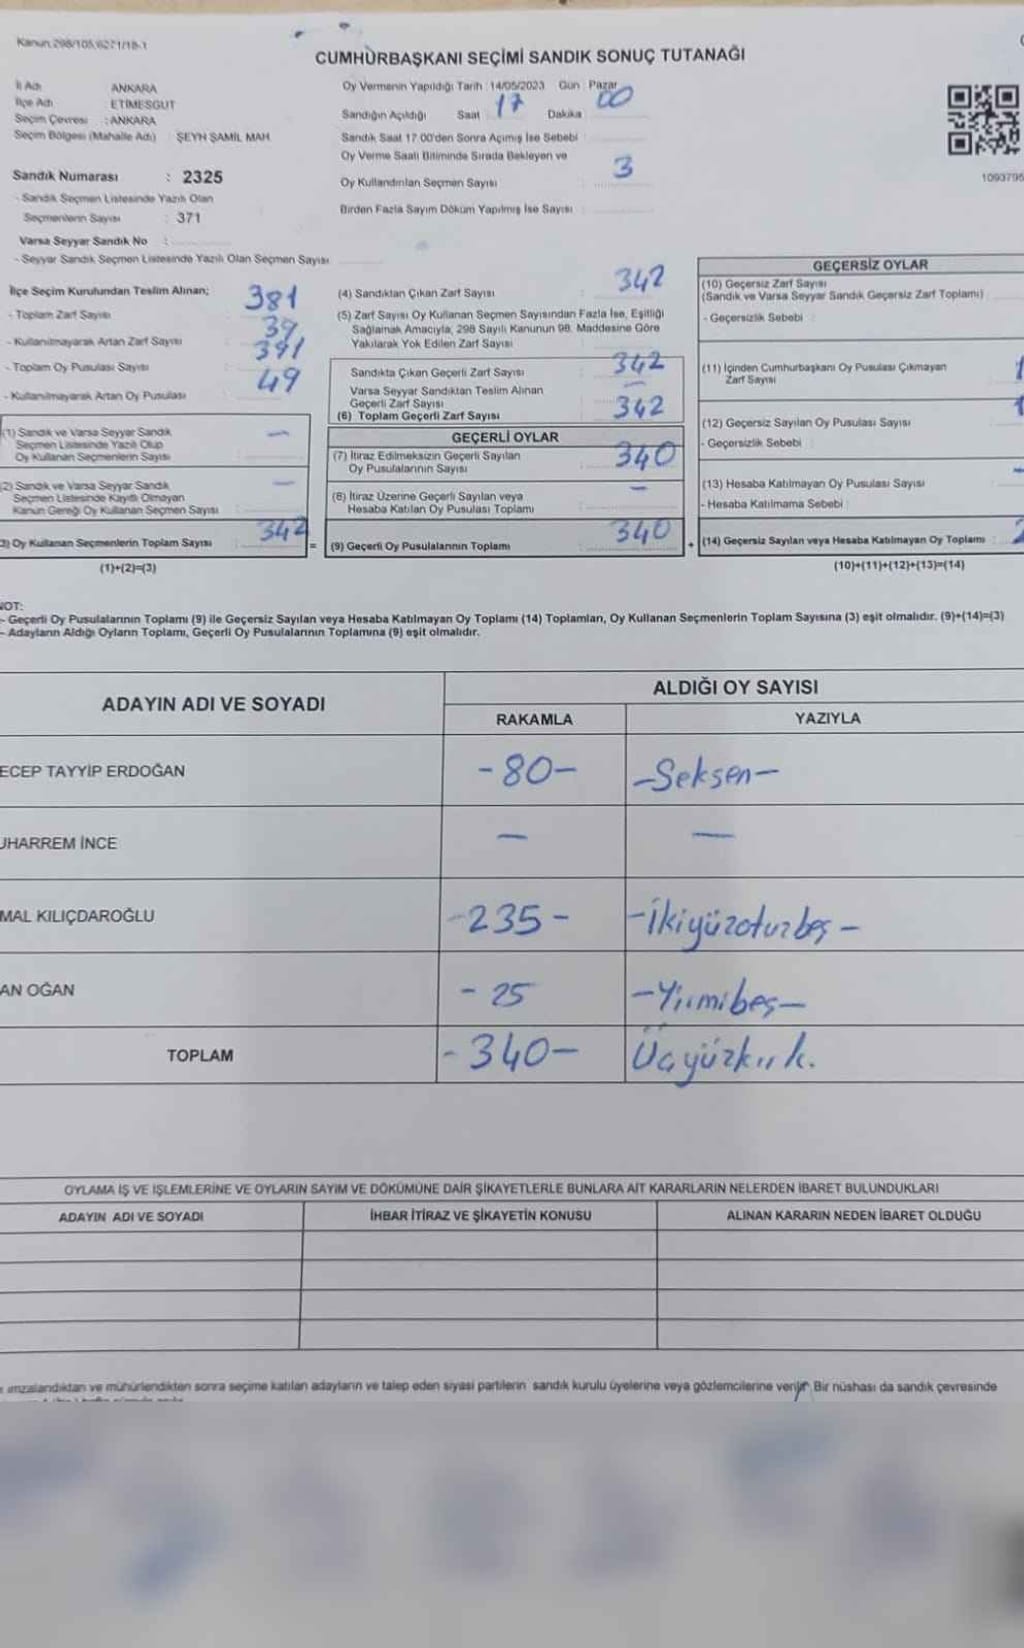 Kanun 298/105,6271/18-1
CUMHURBAŞKANI SEÇİMİ SANDIK SONUÇ TUTANAĞI
İl Adı : ANKARA
İlçe Adı : ETİMESGUT
Seçim Çevresi : ANKARA
Seçim Bölgesi (Mahalle Adı) ŞEYH ŞAMİL MAH
Sandık Numarası : 2325
- Sandık Seçmen Listesinde Yazılı Olan
Seçmenlerin Sayısı : 371
Varsa Seyyar Sandık No :
- Seyyar Sandık Seçmen Listesinde Yazılı Olan Seçmen Sayısı
Oy Vermenin Yapıldığı Tarih : 14/05/2023 Gün : Pazar
Sandığın Açıldığı Saat 17 Dakika 00
Sandık Saat 17.00'den Sonra Açımış İse Sebebi :
Oy Verme Saati Bitiminde Sırada Bekleyen ve
Oy Kullandırılan Seçmen Sayısı : 3
Birden Fazla Sayım Döküm Yapılmış İse Sayısı :
1093795
İlçe Seçim Kurulundan Teslim Alınan;
- Toplam Zarf Sayısı : 381
- Kullanılmayarak Artan Zarf Sayısı : 39
- Toplam Oy Pusulası Sayısı : 391
- Kullanılmayarak Artan Oy Pusulası : 49
(1) Sandık ve Varsa Seyyar Sandık
Seçmen Listesinde Yazılı Olup
Oy Kullanan Seçmenlerin Sayısı : —
(2) Sandık ve Varsa Seyyar Sandık
Seçmen Listesinde Kayıtlı Olmayan
Kanun Gereği Oy Kullanan Seçmen Sayısı : —
3) Oy Kullanan Seçmenlerin Toplam Sayısı : 342
(1)+(2)=(3)
(4) Sandıktan Çıkan Zarf Sayısı : 342
(5) Zarf Sayısı Oy Kullanan Seçmen Sayısından Fazla İse, Eşitliği
Sağlamak Amacıyla, 298 Sayılı Kanunun 98. Maddesine Göre
Yakılarak Yok Edilen Zarf Sayısı :
Sandıkta Çıkan Geçerli Zarf Sayısı : 342
Varsa Seyyar Sandıktan Teslim Alınan
Geçerli Zarf Sayısı : —
(6) Toplam Geçerli Zarf Sayısı : 342
GEÇERLİ OYLAR
(7) İtiraz Edilmeksizin Geçerli Sayılan
Oy Pusulalarının Sayısı : 340
(8) İtiraz Üzerine Geçerli Sayılan veya
Hesaba Katılan Oy Pusulası Toplamı : —
= (9) Geçerli Oy Pusulalarının Toplamı : 340
GEÇERSİZ OYLAR
(10) Geçersiz Zarf Sayısı
(Sandık ve Varsa Seyyar Sandık Geçersiz Zarf Toplamı)
- Geçersizlik Sebebi :
(11) İçinden Cumhurbaşkanı Oy Pusulası Çıkmayan
Zarf Sayısı 1
(12) Geçersiz Sayılan Oy Pusulası Sayısı 1
- Geçersizlik Sebebi :
(13) Hesaba Katılmayan Oy Pusulası Sayısı —
- Hesaba Katılmama Sebebi :
+ (14) Geçersiz Sayılan veya Hesaba Katılmayan Oy Toplamı : 2
(10)+(11)+(12)+(13)=(14)
NOT:
- Geçerli Oy Pusulalarının Toplamı (9) ile Geçersiz Sayılan veya Hesaba Katılmayan Oy Toplamı (14) Toplamları, Oy Kullanan Seçmenlerin Toplam Sayısına (3) eşit olmalıdır. (9)+(14)=(3)
- Adayların Aldığı Oyların Toplamı, Geçerli Oy Pusulalarının Toplamına (9) eşit olmalıdır.
ADAYIN ADI VE SOYADI
ALDIĞI OY SAYISI
RAKAMLA YAZIYLA
ECEP TAYYİP ERDOĞAN -80- -Seksen-
UHARREM İNCE — —
MAL KILIÇDAROĞLU -235- -İkiyüzotuzbeş-
AN OĞAN - 25 -Yirmibeş-
TOPLAM -340- Üçyüzkırk.
OYLAMA İŞ VE İŞLEMLERİNE VE OYLARIN SAYIM VE DÖKÜMÜNE DAİR ŞİKAYETLERLE BUNLARA AİT KARARLARIN NELERDEN İBARET BULUNDUKLARI
ADAYIN ADI VE SOYADI İHBAR İTİRAZ VE ŞİKAYETİN KONUSU ALINAN KARARIN NEDEN İBARET OLDUĞU
imzalandıktan ve mühürlendikten sonra seçime katılan adayların ve talep eden siyasi partilerin sandık kurulu üyelerine veya gözlemcilerine verilir. Bir nüshası da sandık çevresinde